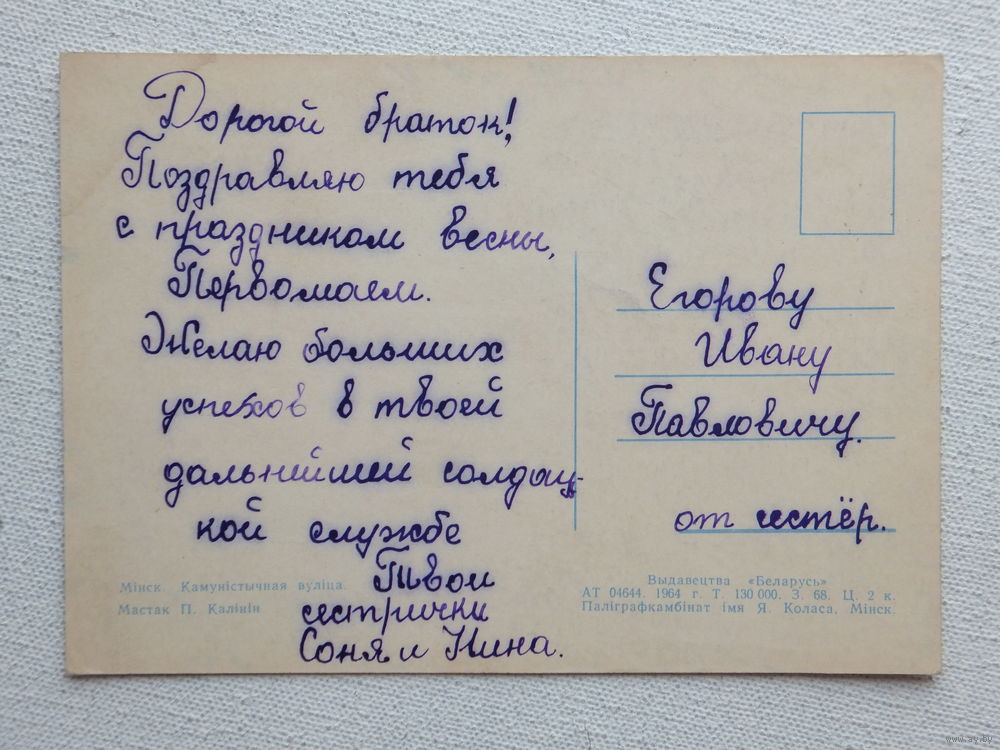 Дорогой браток!
Поздравляю тебя
с праздником весны,
Первомаем.
Желаю больших
успехов в твоей
дальнейшей солдац-
кой службе
Твои
сестрички
Соня и Нина.
Егорову
Ивану
Павловичу.
от сестёр.
Мінск. Камуністычная вуліца.
Мастак П. Калінін
Выдавецтва «Беларусь»
АТ 04644. 1964 г. Т. 130 000. З. 68. Ц. 2 к.
Паліграфкамбінат імя Я. Коласа, Мінск.
www.ay.by